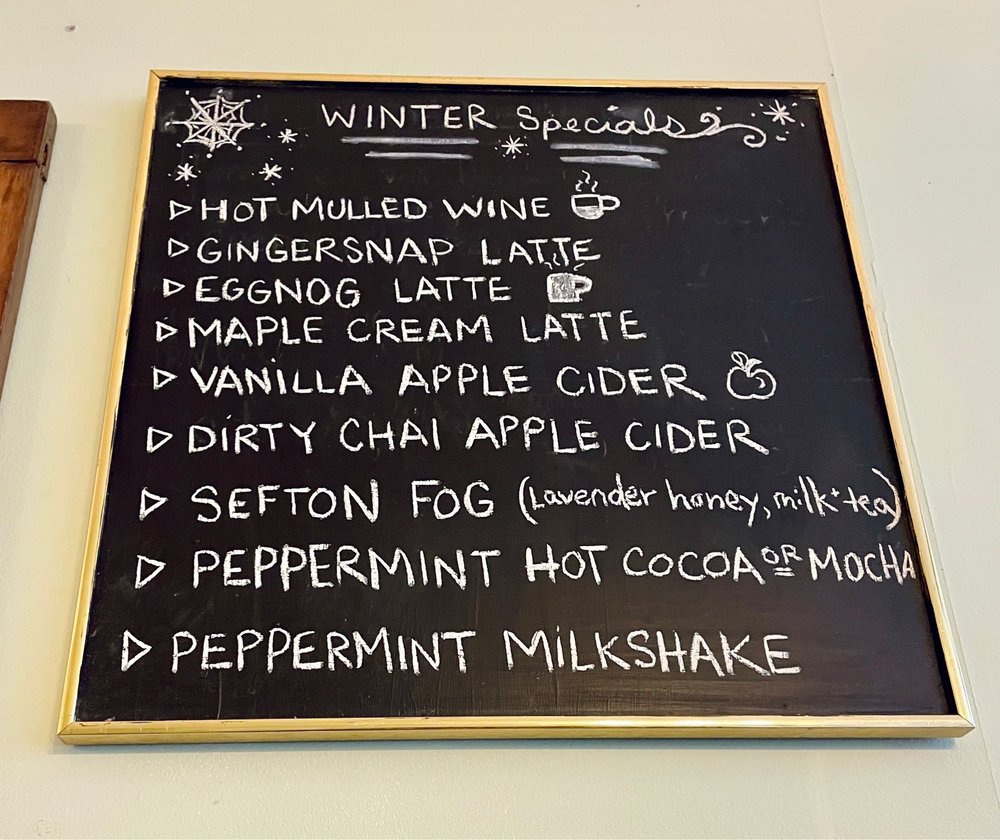 WINTER Specials
HOT MULLED WINE
GINGERSNAP LATTE
EGGNOG LATTE
MAPLE CREAM LATTE
VANILLA APPLE CIDER
DIRTY CHAI APPLE CIDER
SEFTON FOG (Lavender honey, milk + tea)
PEPPERMINT HOT COCOA OR MOCHA
PEPPERMINT MILKSHAKE